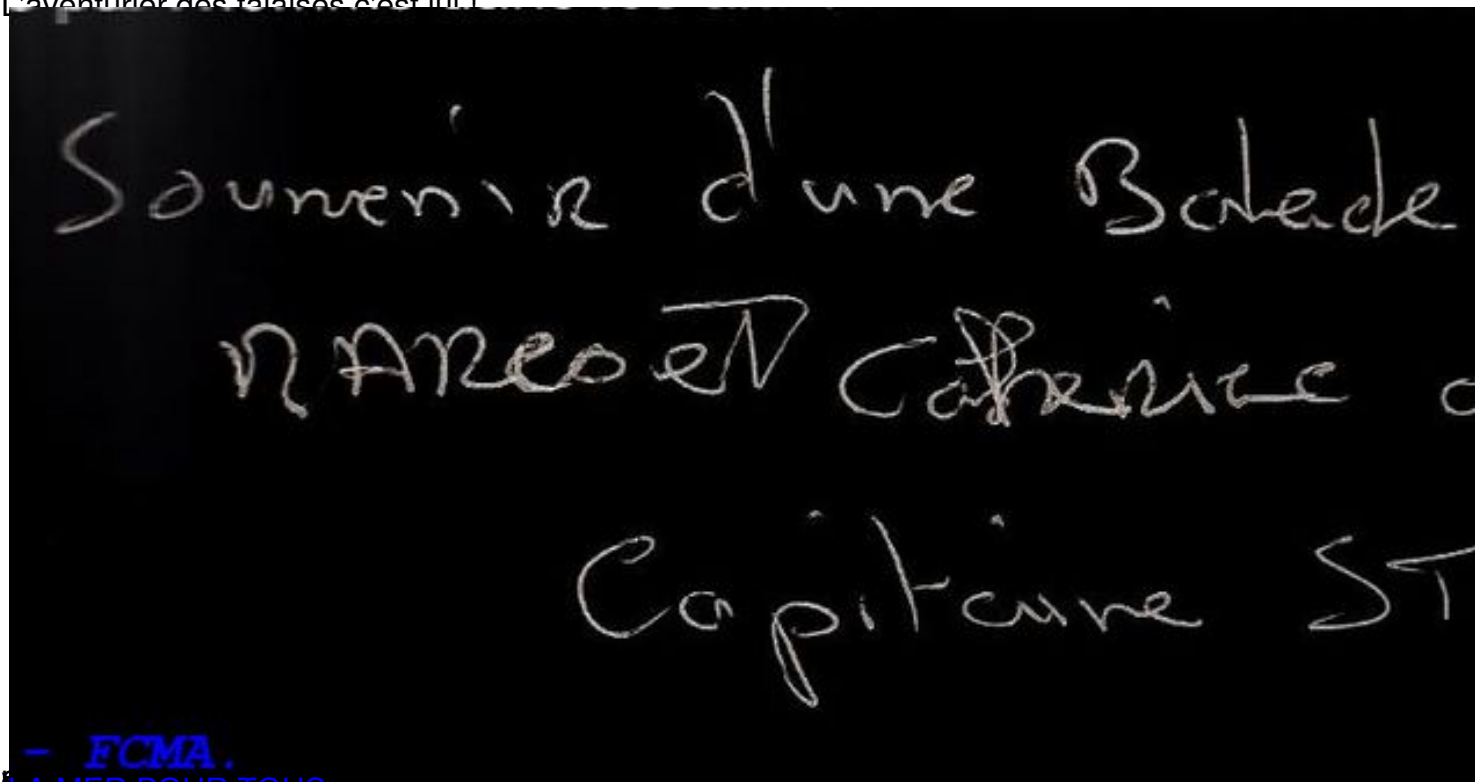 L'aventurier des falaises c'est lui !
Souvenir d'une Balade
MARCO ET Catherine
Capitaine ST
- FCMA.
LA MER POUR TOUS